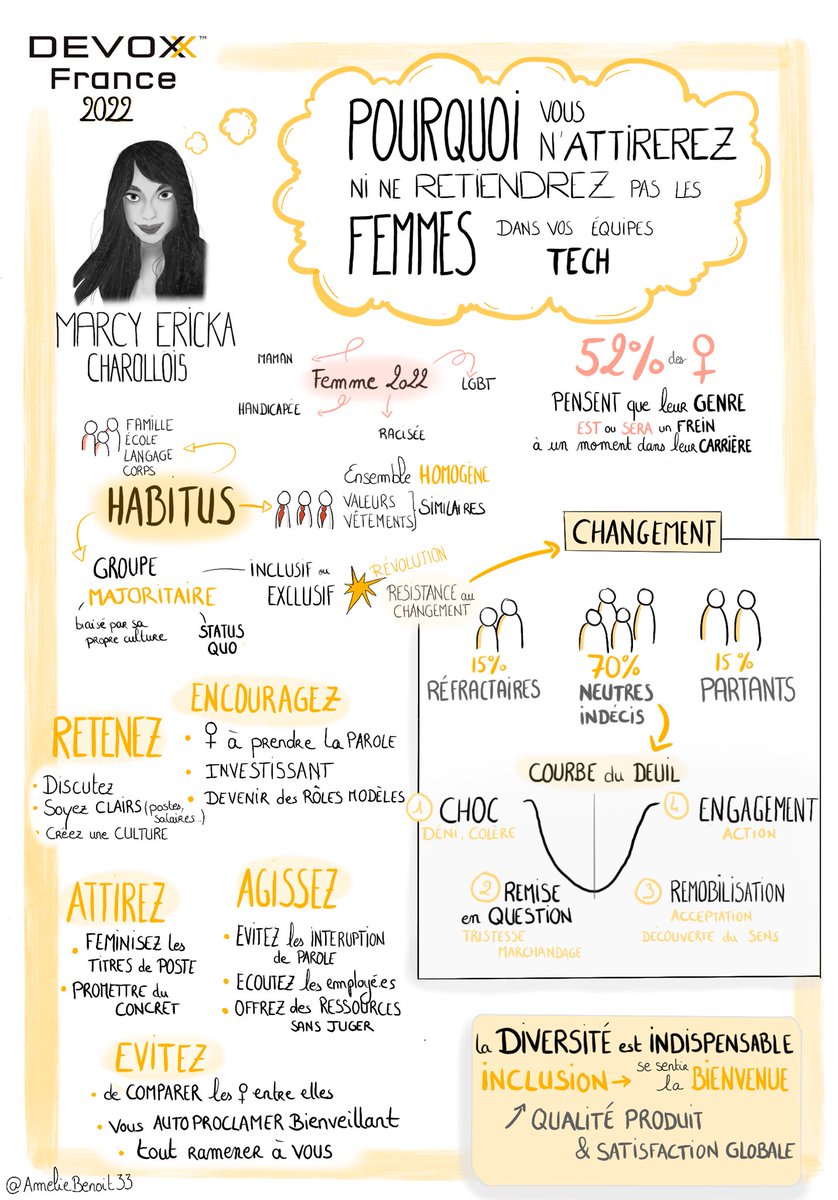 DEVOXX™
France
2022
POURQUOI VOUS
N'ATTIREREZ
NI NE RETIENDREZ PAS LES
FEMMES DANS VOS ÉQUIPES
TECH
MARCY ERICKA
CHAROLLOIS
MAMAN
Femme 2022
LGBT
HANDICAPÉE
RACISÉE
52% des ♀
PENSENT que leur GENRE
EST ou SERA un FREIN
à un moment dans leur CARRIÈRE
FAMILLE
ÉCOLE
LANGAGE
CORPS
HABITUS
Ensemble HOMOGÈNE
VALEURS
VÊTEMENTS } SIMILAIRES
GROUPE
MAJORITAIRE
biaisé par sa
propre culture
STATUS
QUO
INCLUSIF ou
EXCLUSIF
RÉVOLUTION
RESISTANCE au
CHANGEMENT
CHANGEMENT
15%
RÉFRACTAIRES
70%
NEUTRES
INDÉCIS
15%
PARTANTS
COURBE du DEUIL
1 CHOC
DÉNI, COLÈRE
2 REMISE
en QUESTION
TRISTESSE
MARCHANDAGE
3 REMOBILISATION
ACCEPTATION
DÉCOUVERTE du SENS
4 ENGAGEMENT
ACTION
RETENEZ
• Discutez
• Soyez CLAIRS (postes,
salaires...)
• Créez une CULTURE
ENCOURAGEZ
• ♀ à prendre la PAROLE
• INVESTISSANT
• DEVENIR des RÔLES MODÈLES
ATTIREZ
• FEMINISEZ les
TITRES de POSTE
• PROMETTRE du
CONCRET
AGISSEZ
• EVITEZ les INTERUPTION
de PAROLE
• ECOUTEZ les employé.es
• OFFREZ des RESSOURCES
SANS JUGER
EVITEZ
• de COMPARER les ♀ entre elles
• Vous AUTOPROCLAMER Bienveillant
• tout ramener à VOUS
la DIVERSITÉ est INDISPENSABLE
INCLUSION → se sentir
la BIENVENUE
↗ QUALITÉ PRODUIT
& SATISFACTION GLOBALE
@AmelieBenoit33